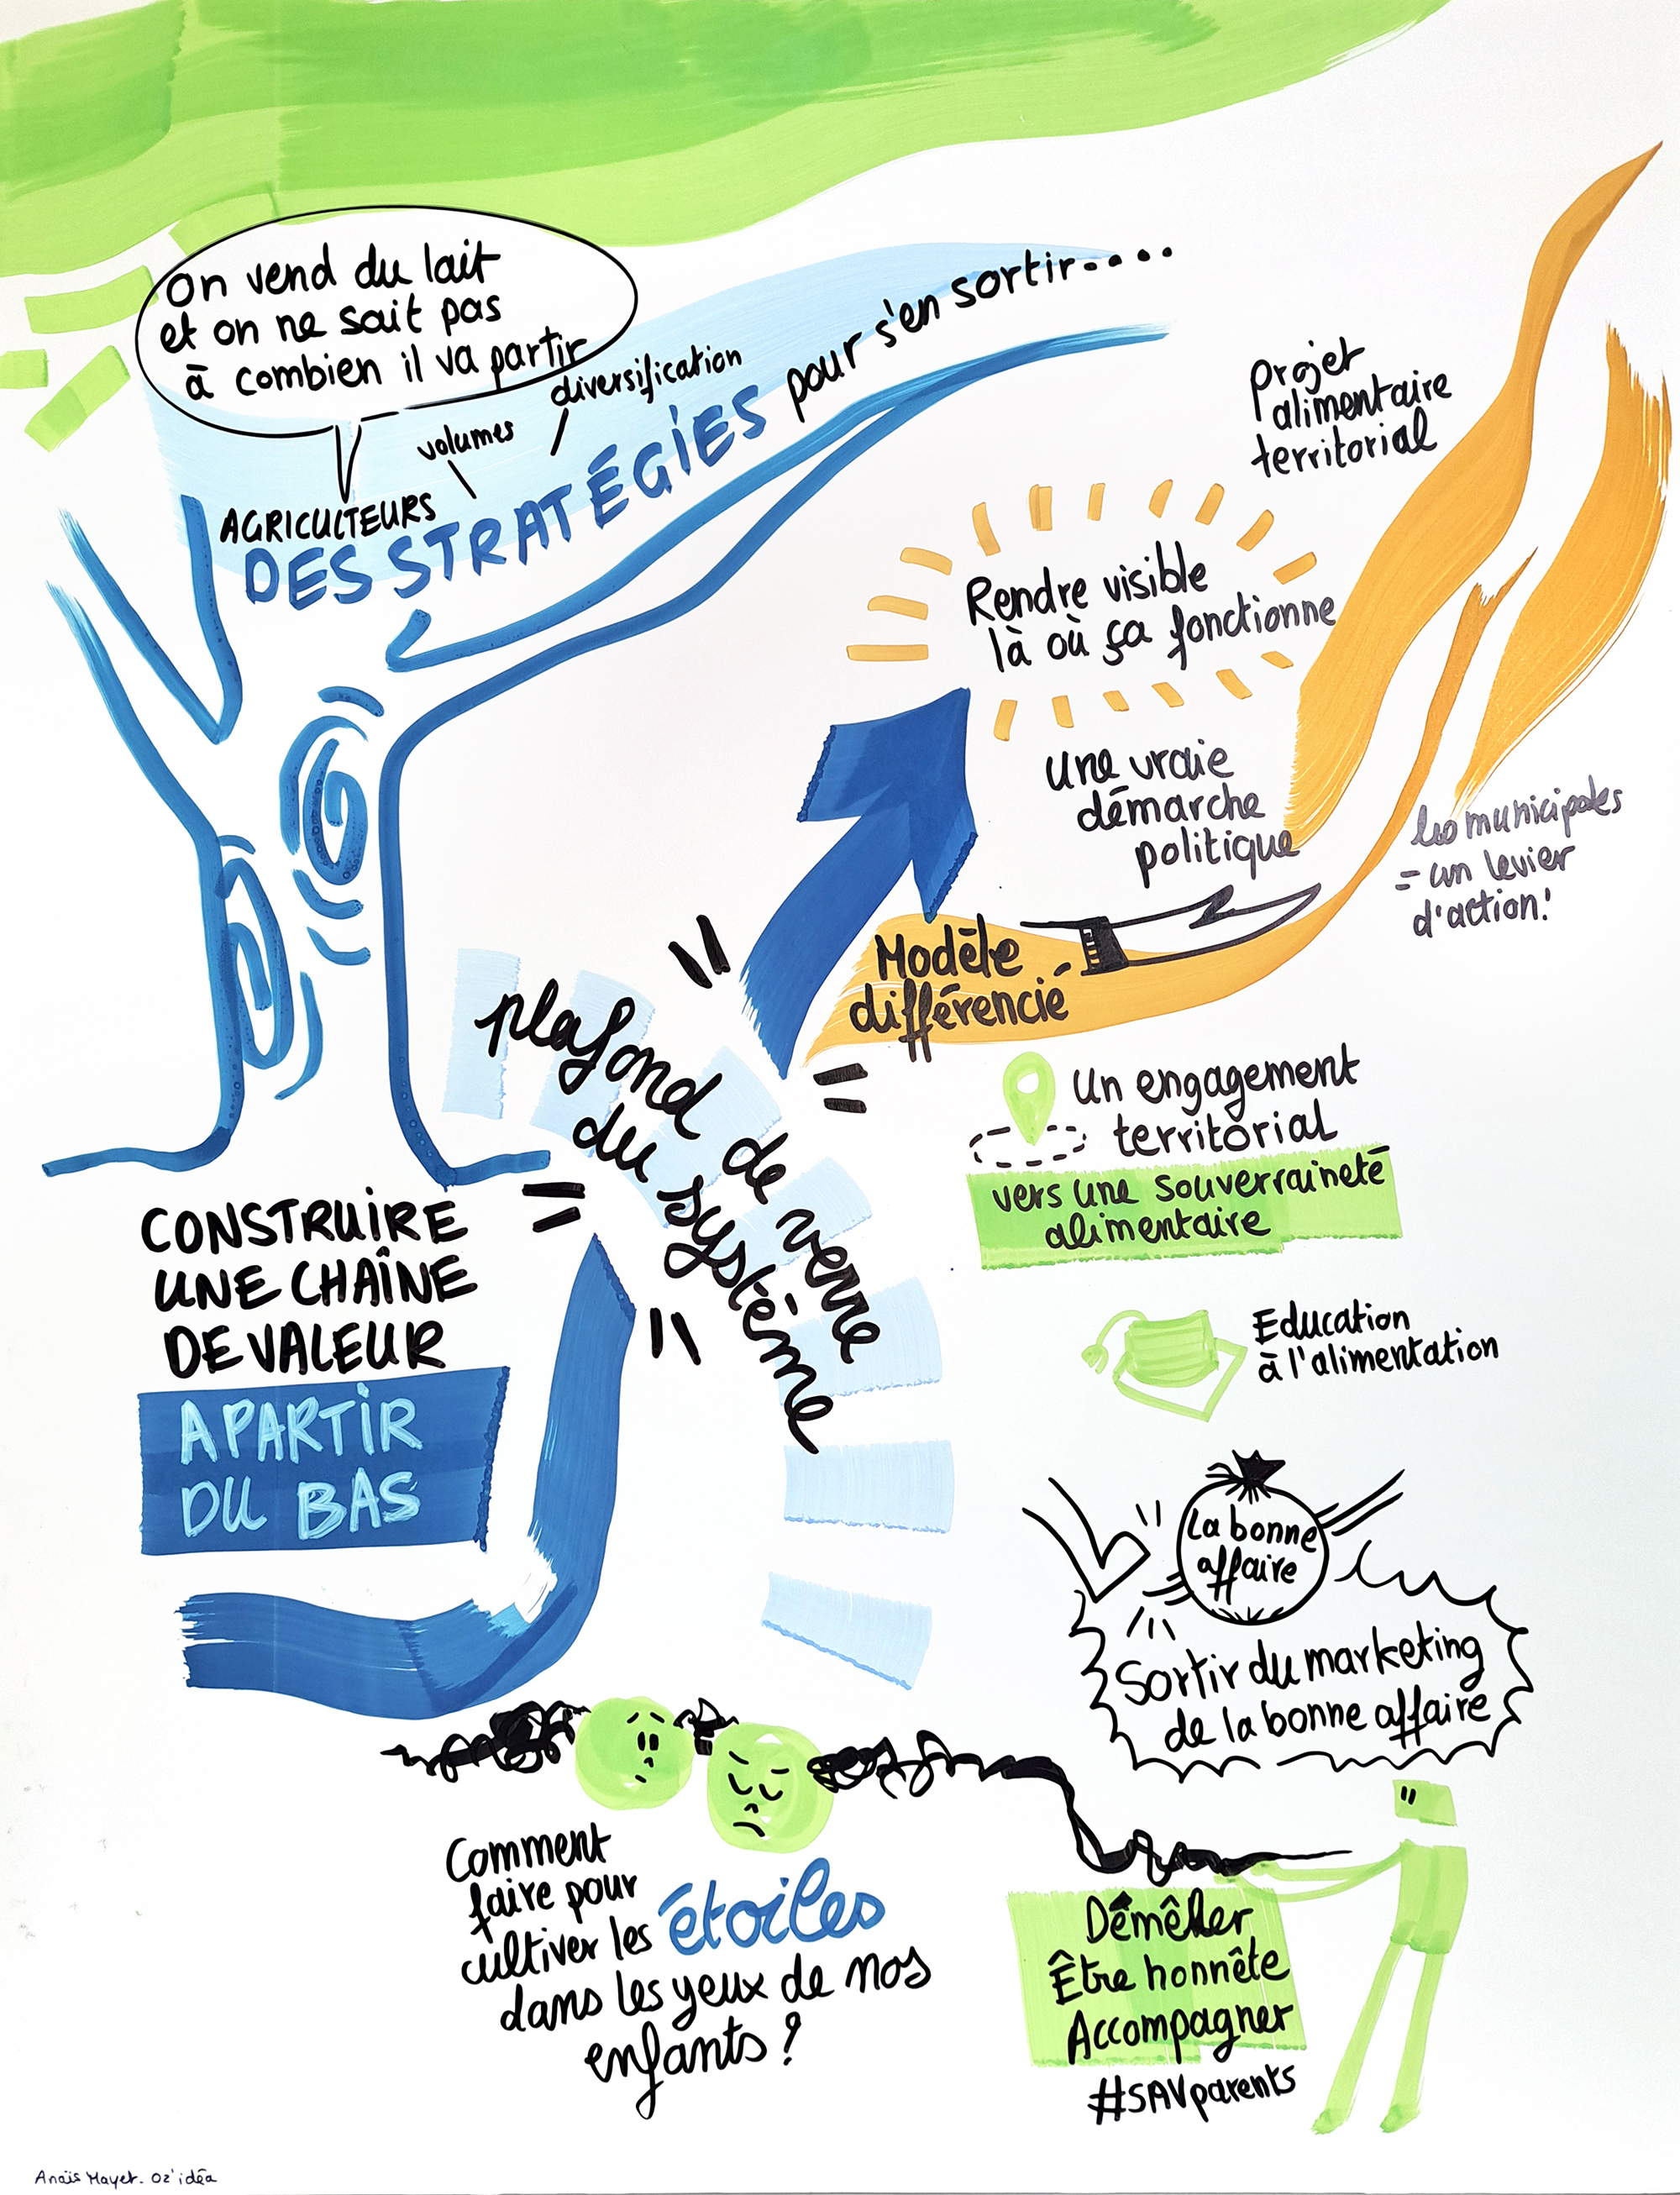 On vend du lait
et on ne sait pas
à combien il va partir
diversification
volumes
AGRICULTEURS
DES STRATÉGIES pour s'en sortir....
Projet
alimentaire
territorial
Rendre visible
là où ça fonctionne
Une vraie
démarche
politique
les municipales
= un levier
d'action!
Modèle
différencié
plafond de verre
du système
Un engagement
territorial
vers une souverraineté
alimentaire
CONSTRUIRE
UNE CHAÎNE
DE VALEUR
A PARTIR
DU BAS
Education
à l'alimentation
La bonne
affaire
Sortir du marketing
de la bonne affaire
Comment
faire pour
cultiver les étoiles
dans les yeux de nos
enfants?
Démêler
Être honnête
Accompagner
#SAVparents
Anaïs Mayet - Oz'idéa